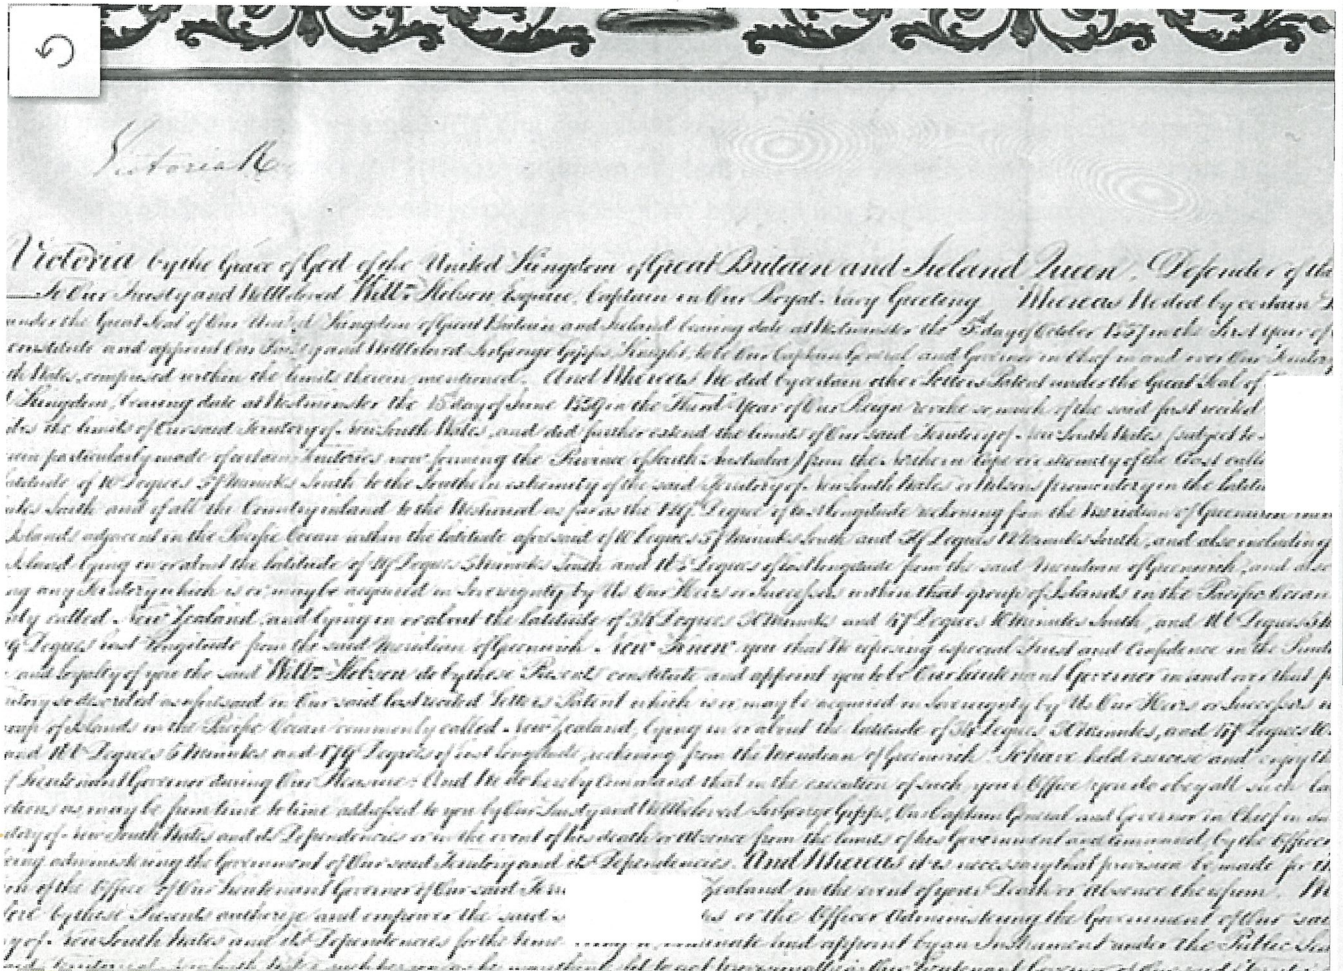 5
Victoria R
Victoria by the Grace of God of the United Kingdom of Great Britain and Ireland Queen, Defender of the
To Our Trusty and Wellbeloved Willm Hobson Esquire, Captain in Our Royal Navy Greeting Whereas We did by certain
under the Great Seal of Our United Kingdom of Great Britain and Ireland bearing date at Westminster the 5th day of October 1837 in the First Year of
constitute and appoint Our Trusty and Wellbeloved Sir George Gipps Knight, to be Our Captain General and Governor in Chief in and over Our Territory
th Wales, comprised within the limits therein mentioned. And Whereas We did by certain other Letters Patent under the Great Seal of
Kingdom, bearing date at Westminster the 15 day of June 1839 in the Third Year of Our Reign revoke so much of the said first recited
des the limits of Our said Territory of New South Wales, and did further extend the limits of Our said Territory of New South Wales (subject to
particularly made of certain Territories now forming the Province of South Australia) from the Northern Cape or extremity of the Coast called
Latitude of 10 Degrees 37 Minutes South to the Southern extremity of the said Territory of New South Wales or Wilsons promontory in the latitu
utes South and of all the Country inland to the Westward as far as the 129th Degree of East longitude reckoning from the Meridian of Greenwich
Islands adjacent in the Pacific Ocean within the latitude aforesaid of 10 Degrees 37 Minutes South and 39 Degrees 12 Minutes South, and also including
Island lying in or about the latitude of 29 Degrees 3 Minutes South and 168 Degrees of East longitude from the said Meridian of Greenwich, and also
ng any Territory which is or may be acquired in Sovereignty by Us Our Heirs or Successors within that group of Islands in the Pacific Ocean
nly called New Zealand, and lying in or about the latitude of 34 Degrees 30 Minutes and 47 Degrees 10 Minutes South, and 166 Degrees 5
9 Degrees East Longitude from the said Meridian of Greenwich Now Know you that We reposing especial Trust and Confidence in the Prude
and loyalty of you the said Willm Hobson do by these Presents constitute and appoint you to be Our Lieutenant Governor in and over that p
ritory so described as aforesaid in Our said last recited Letters Patent which is or may be acquired in Sovereignty by Us Our Heirs or Successors
roup of Islands in the Pacific Ocean commonly called New Zealand, lying in or about the latitude of 34 Degrees 30 Minutes, and 47 Degrees 10
and 166 Degrees 5 Minutes and 179 Degrees of East longitude, reckoning from the Meridian of Greenwich. To have hold exercise and enjoy th
f Lieutenant Governor during Our Pleasure: And We do hereby Command that in the execution of such your Office you do obey all such
ctions as may be from time to time addressed to you by Our Trusty and Wellbeloved Sir George Gipps, Our Captain General and Governor in Chief in
itory of New South Wales and its Dependencies or in the event of his death or absence from the limits of his Government and Command, by the Officer
eing administering the Government of Our said Territory and its Dependencies. And Whereas it is necessary that provision be made for th
on of the Office of Our Lieutenant Governor of Our said Zealand in the event of your Death or absence therefrom.
fore by these Presents authorize and empower the said or the Officer Administering the Government of Our said
y of New South Wales and its Dependencies for the time nominate and appoint by an Instrument under the Public Sea